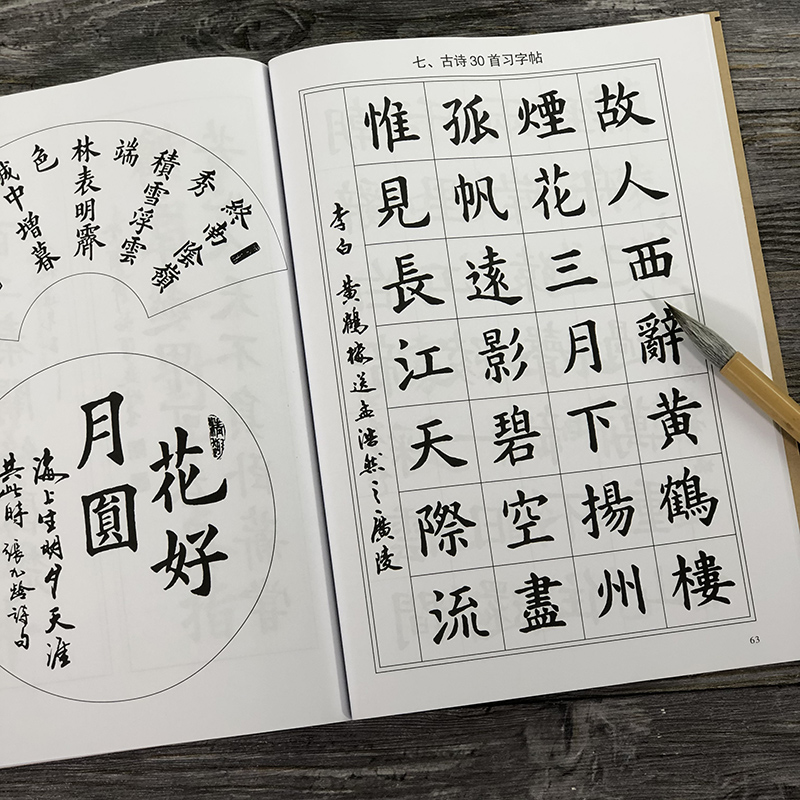 七、古诗30首习字帖
故人西辭黄鶴樓
煙花三月下揚州
孤帆遠影碧空盡
惟見長江天際流
李白 黄鶴樓送孟浩然之廣陵
63
終南陰嶺
秀
積雪浮雲
端
林表明霽
色
城中增暮
花好
月圓
海上生明月天涯
共此時 張九齡詩句